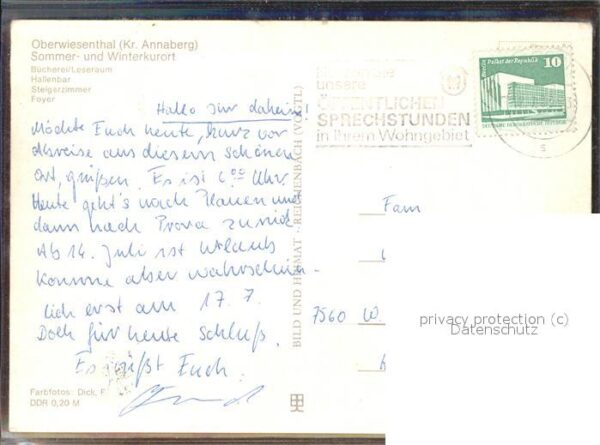 Oberwiesenthal (Kr. Annaberg)
Sommer- und Winterkurort
Bücherei/Leseraum
Hallenbar
Steigerzimmer
Foyer
Hallo Ihr daheim!
Möchte Euch heute, kurz vor
Abreise aus diesem schönen
Ort, grüßen. Es ist 6.00 Uhr.
Heute geht's nach Plauen und
dann nach Prora zurück.
Ab 14. Juli ist Urlaub
Komme aber wahrschein-
lich erst am 17.7.
Doch für heute Schluß.
Es grüßt Euch
Farbfotos: Dick,
DDR 0,20 M
BILD UND HEIMAT REICHENBACH (VOGTL)
unsere
ÖFFENTLICHEN
SPRECHSTUNDEN
in Ihrem Wohngebiet
Berlin Palast der Republik
10
DEUTSCHE DEMOKRATISCHE REPUBLIK
s
Fam
7560 W
privacy protection (c)
Datenschutz